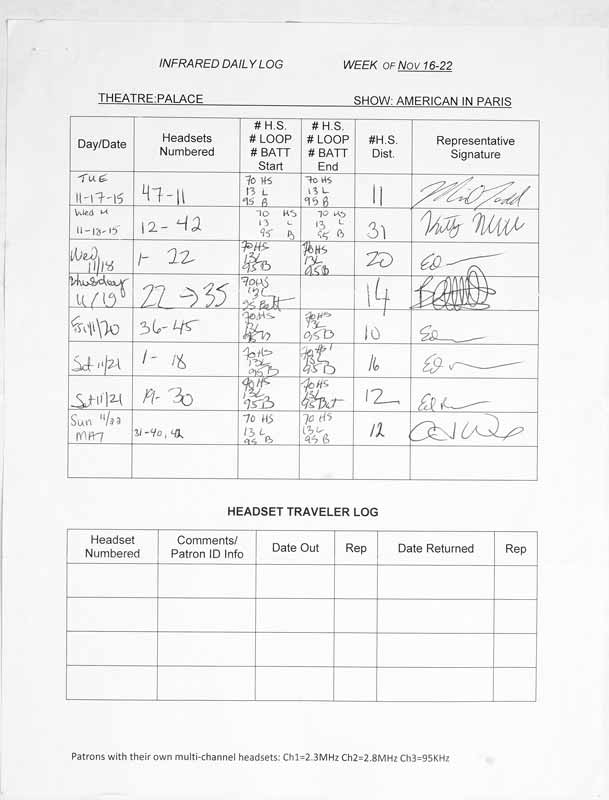 INFRARED DAILY LOG WEEK OF NOV 16-22
THEATRE:PALACE SHOW: AMERICAN IN PARIS
Day/Date
Headsets Numbered
# H.S. # LOOP # BATT Start
# H.S. # LOOP # BATT End
#H.S. Dist.
Representative Signature
TUE 11-17-15 47-11 70 HS 13 L 95 B 70 HS 13 L 95 B 11
Wed M 11-18-15 12-42 70 HS 13 L 95 B 70 HS 13 L 95 B 31
Wed 11/18 1- 22 70HS 13L 95B 70HS 13L 95B 20 Ed
Thursday 11/19 22→35 70HS 13L 95 Batt 14
Fri 11/20 36-45 70HS 13L 95B 70HS 13L 95B 10 Ed
Sat 11/21 1- 18 70HS 13L 95B 70HS 13L 95B 16 Ed
Sat 11/21 19- 30 70HS 13L 95B 70HS 13L 95Bat 12 Ed
Sun 11/22 MAT 31-40, 42 70 HS 13 L 95 B 70 HS 13 L 95 B 12
HEADSET TRAVELER LOG
Headset Numbered
Comments/ Patron ID Info
Date Out
Rep
Date Returned
Rep
Patrons with their own multi-channel headsets: Ch1=2.3MHz Ch2=2.8MHz Ch3=95KHz